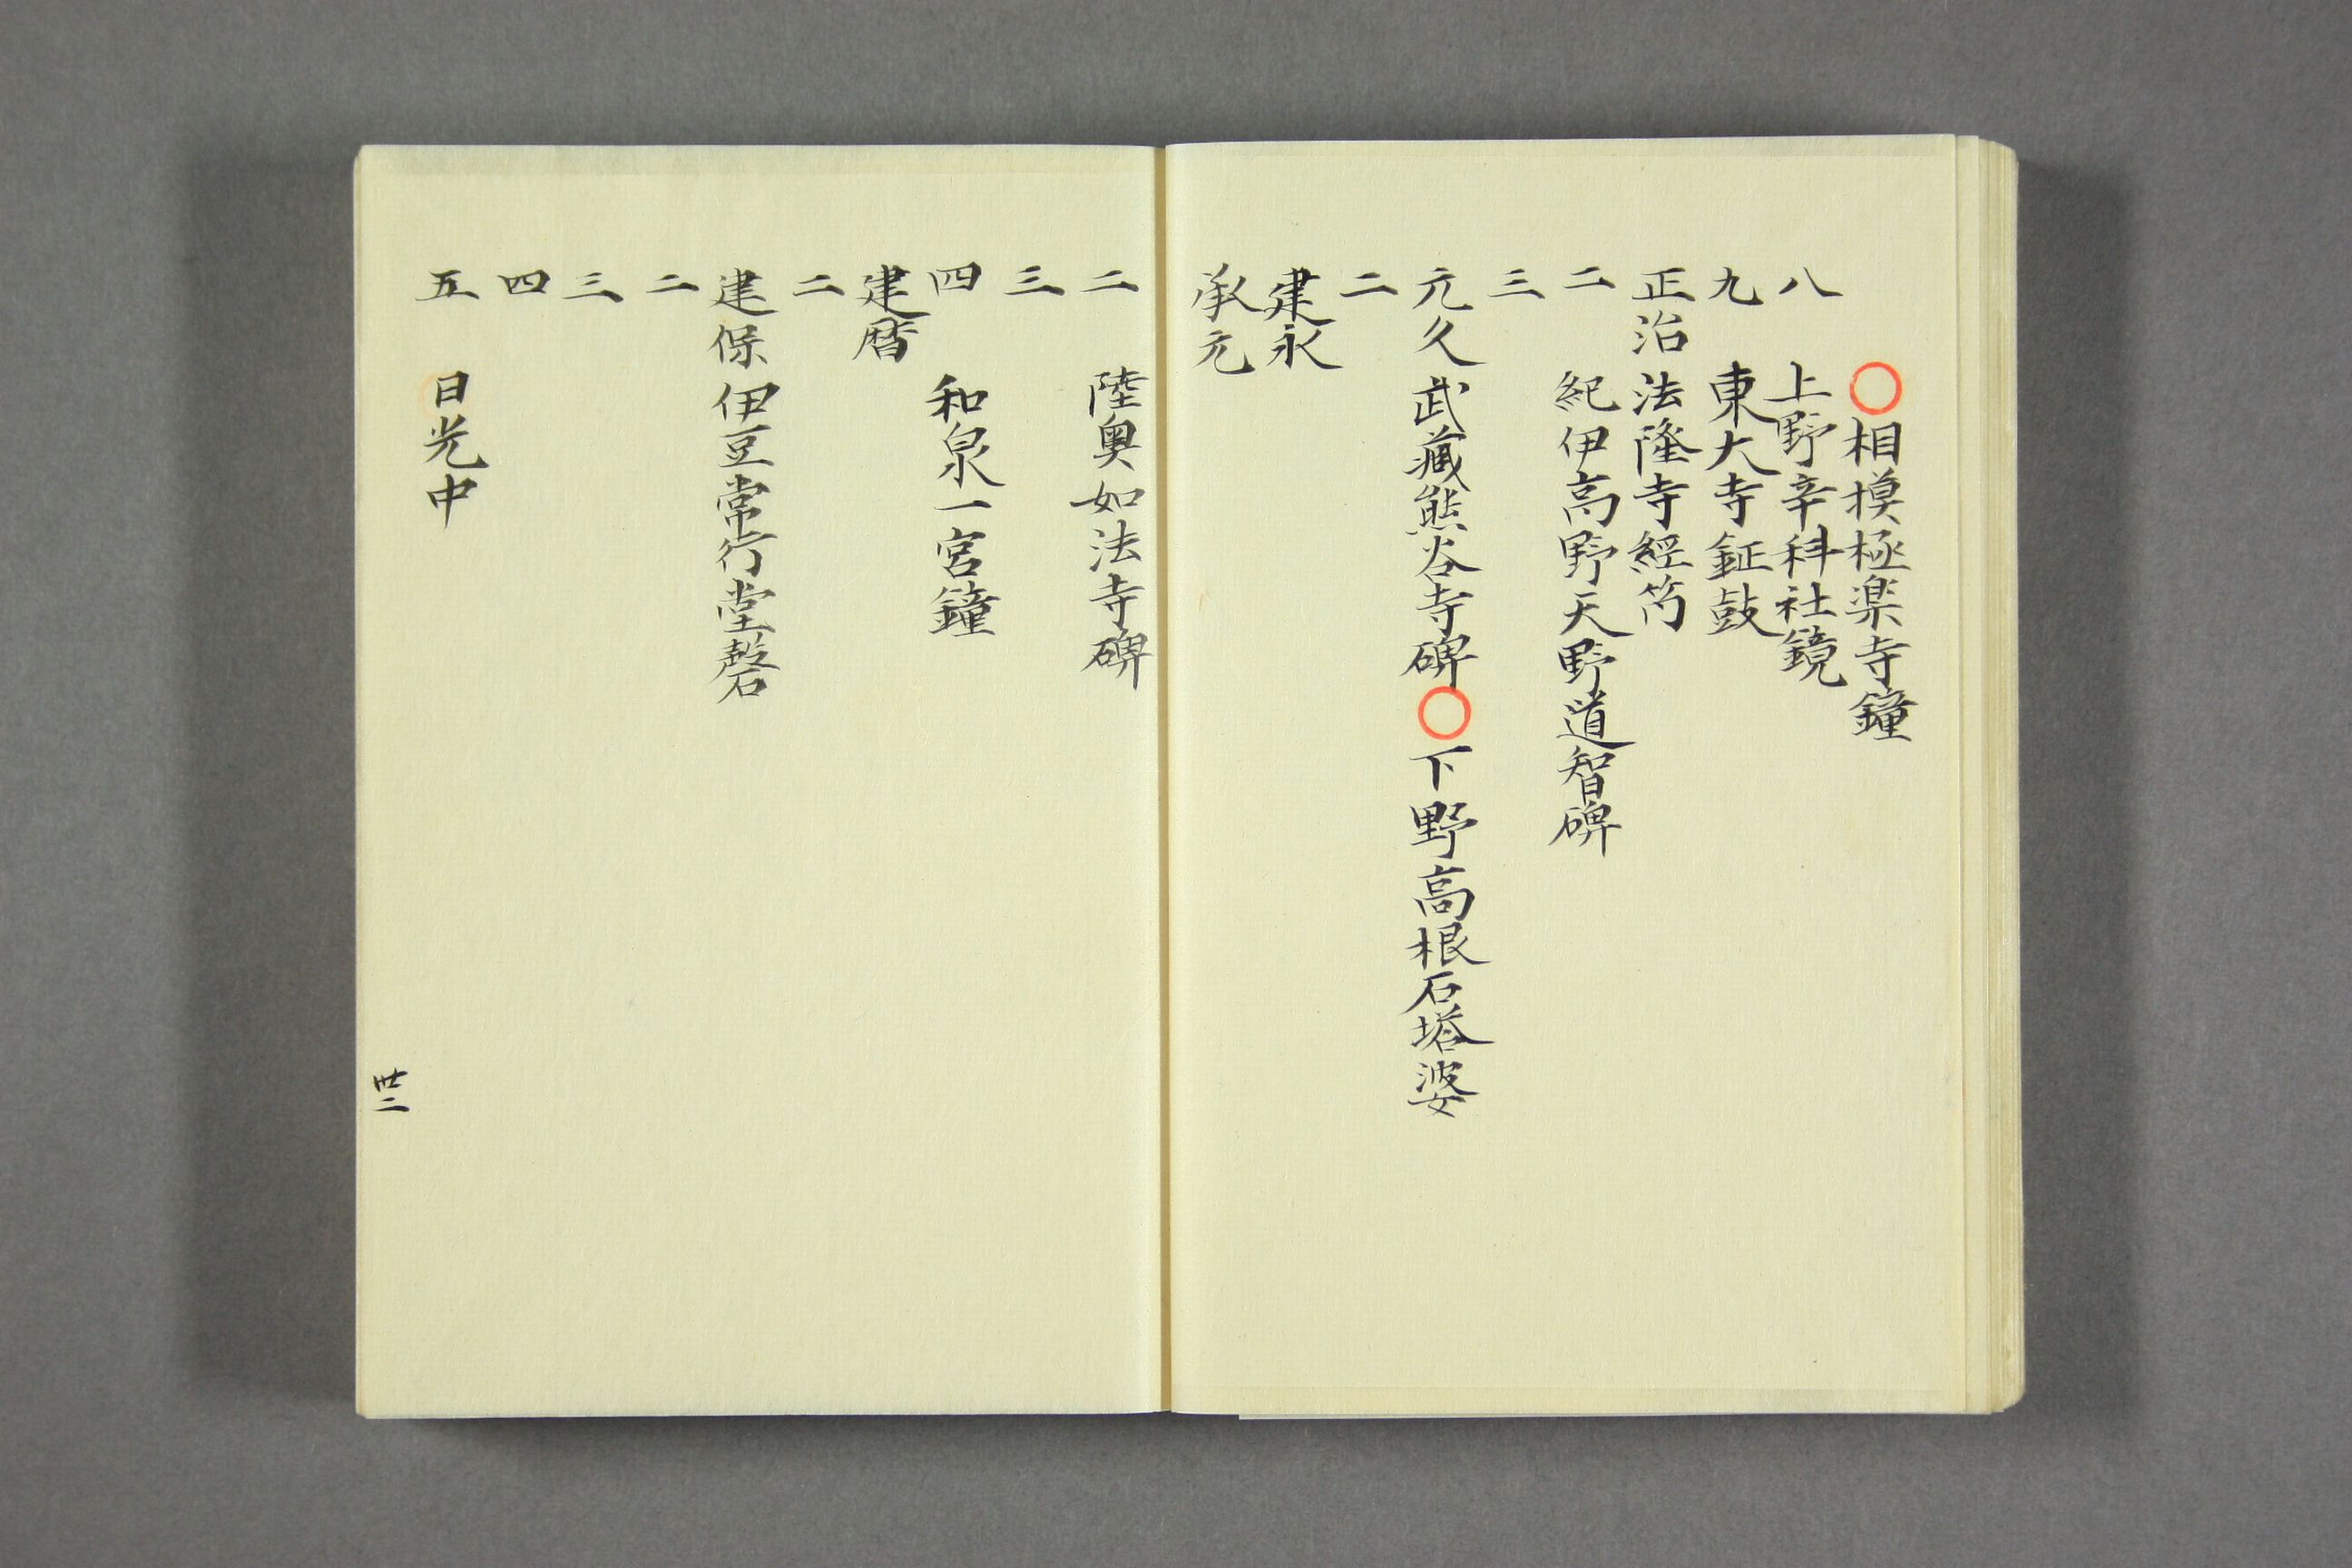 〇相摸極楽寺鐘
八 上野辛科社鏡
九 東大寺鉦鼓
正治 法隆寺經笥
二 紀伊高野天野道智碑
三
元久 武藏熊谷寺碑〇下野高根石塔婆
二
建永
承元
二 陸奥如法寺碑
三
四 和泉一宮鐘
建暦
二
建保 伊豆常行堂磬
二
三
四
五 日光中
卅二